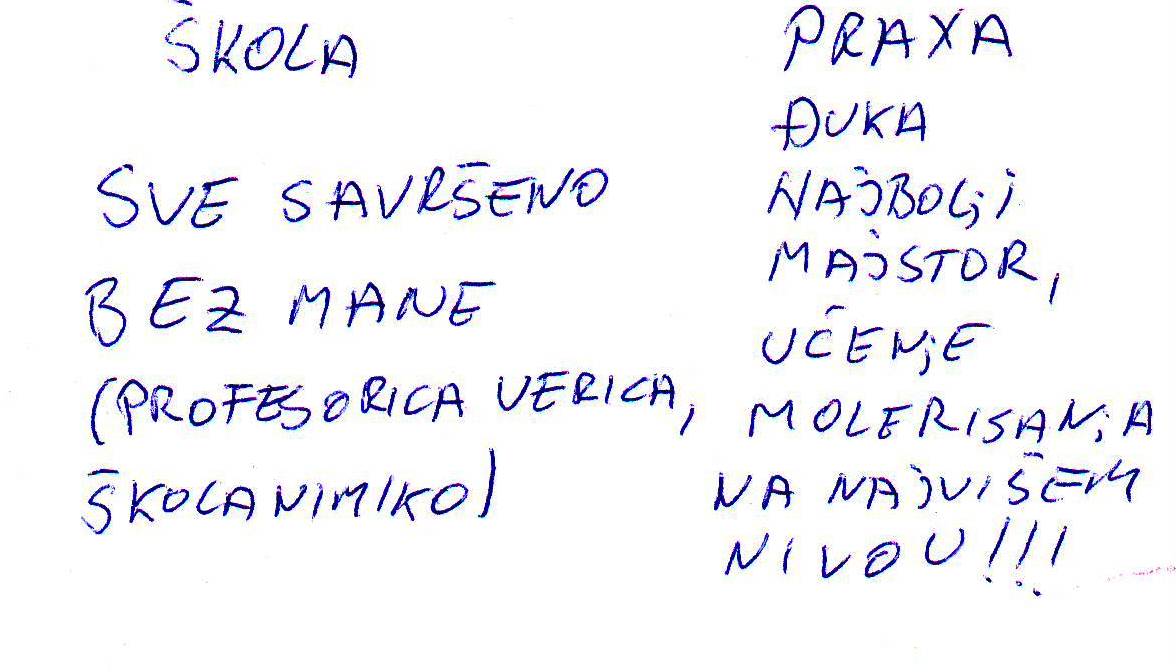 ŠKOLA
SVE SAVRŠENO
BEZ MANE
(PROFESORICA VERICA,
ŠKOLANIMIKO)
PRAXA
ĐUKA
NAJBOLJI
MAJSTOR,
UČENJE
MOLERISANJA
NA NAJVIŠEM
NIVOU!!!